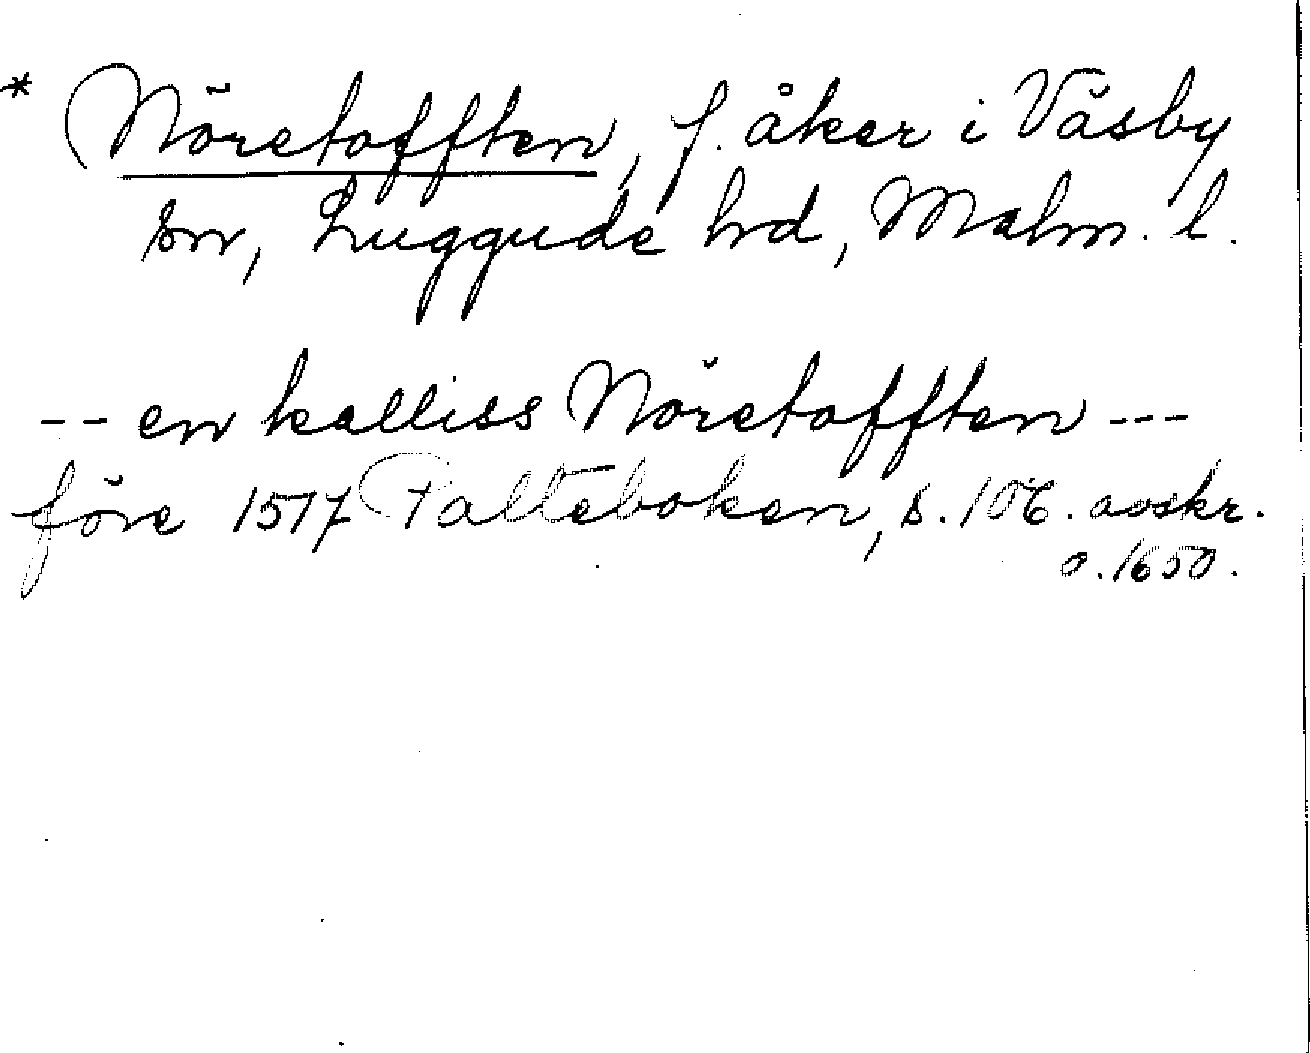 * Nöretofften, f. åker i Väsby
sn, Luggude hd, Malm. l.
-- en kalliss Nöretofften ---
före 1517 Palteboken, s. 106. avskr.
o. 1650.